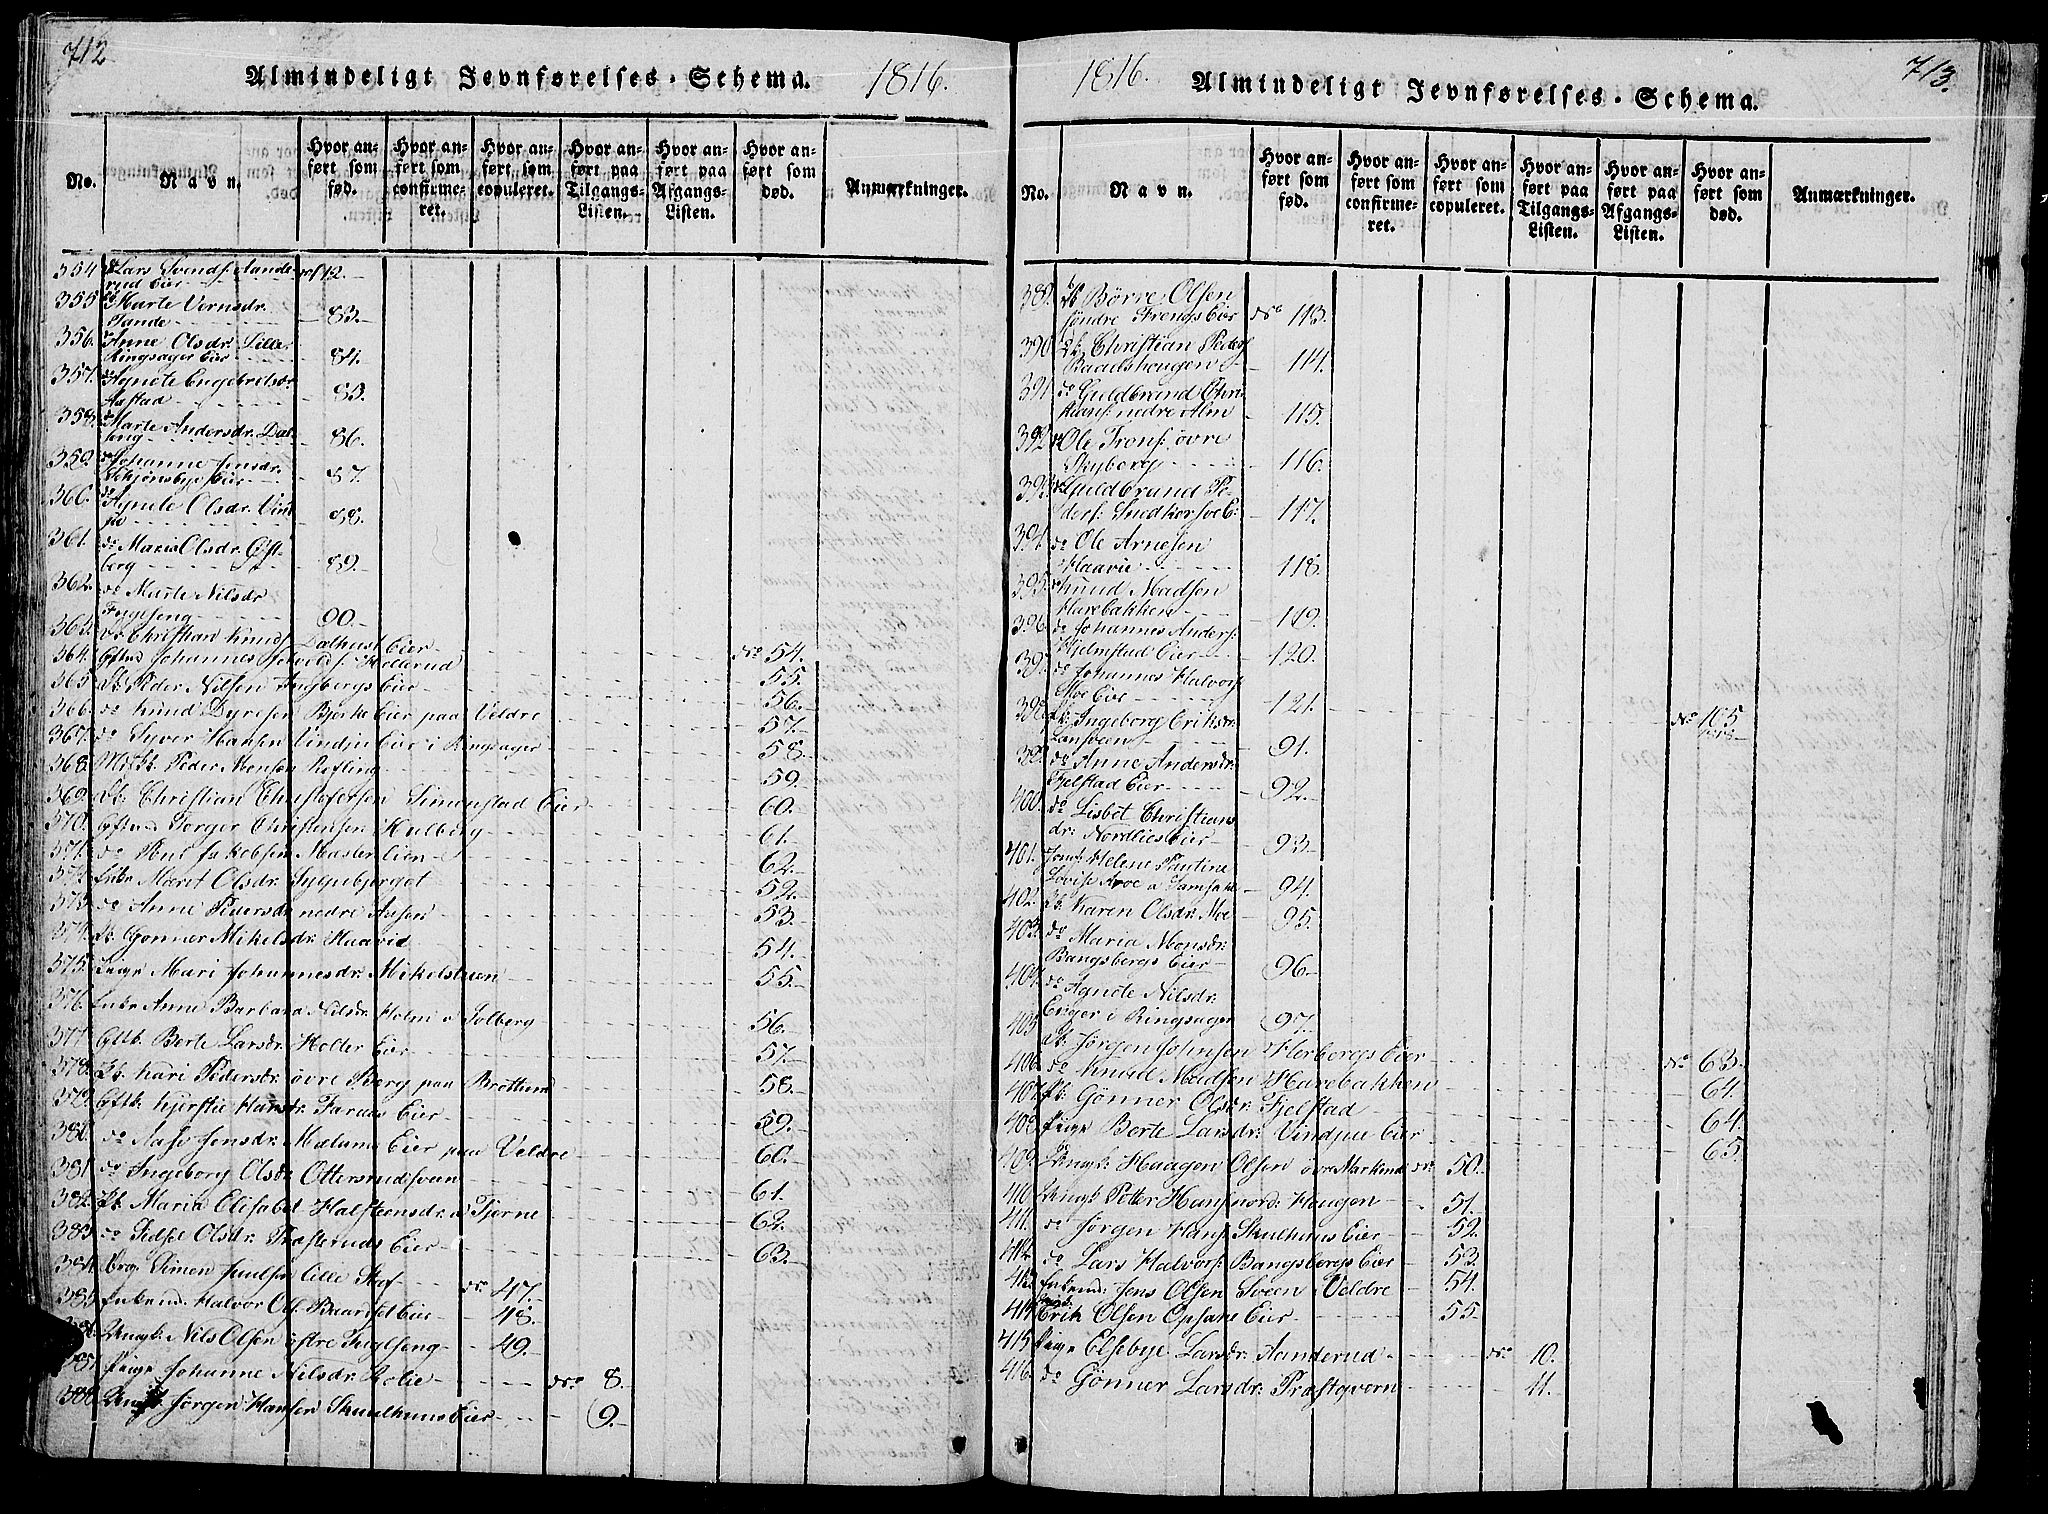 712
Almindeligt Jevnførelses-Schema. 1816.
No.
Navn.
Hvor anført som fød.
Hvor anført som confirmeret.
Hvor anført som copuleret.
Hvor anført paa Tilgangs-Listen.
Hvor anført paa Afgangs-Listen.
Hvor anført som død.
Anmærkninger.
354 Lars Svends: Aande
rud Eier
355 Marte Vernsdr.
Tande 83.
356. Anne Olsdr. Lille
Ringsager Eier 84.
357. Agnete Engebretsdr.
Aastad 85.
358. Marte Andersdr. Dal
seng 86.
359. Johanne Jensdr.
Schjønsbye Eier 87.
360. Agnete Olsdr. Vind
ju 88.
361. do Maria Olsdr. Øst-
berg 89.
362. do Marte Nilsdr
Fuglseng 90.
363. Christian Knuds Dalhust Eier No 54.
364. Johannes Hollerud 55.
365 Peder Nilsen Engbergs Eier 56.
366. do Knud Dyresen Bjerke Eier paa Veldre 57.
367. do Syver Hansen Vindju Eier i Ringsager 58.
368. Peder Monsen Refling 59.
369. Christian Christofersen Simenstad Eier 60.
370. Torger Christensen Hulberg 61.
371. do Jakobsen Eier 62.
372. Enke Marit Olsdr. 52.
373. do Anne Pedersdr nedre Aasen 53.
374. Gønner Mikelsdr. Haavid 54.
375. Pige Mari Johannesdr. Mikelstuen 55.
376. Enke Anne Barbara Nilsdr. Holm o Solberg 56.
377. Berte Larsdr. Holter Eier 57.
378. Kari Pedersdr. øvre Berg paa Brøttum 58.
379. Kjerstie Hansdr. Farnes Eier 59.
380. do Jensdr. Mælums Eier paa Veldre 60.
381. do Ingeborg Olsdr. Ottersrudsveen 61.
382. Maria Elisabet Halsteensdr. a Tjerne 62.
383. do Sidsel Olsdr. Præsteruds Eier 63.
384. Simen Lille Stof No 47.
385. Enkemd. Halvor Ols: Baarset Eier 48.
386. Ungk: Nils Olsen østre Fuglseng 49.
387. Pige Johanne Nilsdr. Bolie No 8.
388. Ungk. Jørgen Hansen Skuelhuus Eier 9.
713.
1816. Almindeligt Jevnførelses-Schema.
No.
Navn.
Hvor anført som fød.
Hvor anført som confirmeret.
Hvor anført som copuleret.
Hvor anført paa Tilgangs-Listen.
Hvor anført paa Afgangs-Listen.
Hvor anført som død.
Anmærkninger.
389. Børre Olsen
søndre Frengs Eier No 113.
390 Christian Peders
Baadshaugen 114.
391 do Guldbrand Chri
stians: nedre Alm 115.
392 Ole Trons: øvre
Skyberg 116.
393. Guldbrand Pe-
ders: 117.
394. do Ole Arnesen
Haavie 118.
395. Knud Madsen
Harebakken 119.
396. do Johannes Anders:
Hjelmstad Eier 120.
397. do Johannes Halvors
Moe Eie 121.
398. Ingeborg Eriksdr. No 105
Lansveen 91.
399. do Anne Andersdr.
Fjelstad Eier 92.
400. do Lisbet Christians
dr: Nordlies Eier 93.
401. Helene Pautine
Lovise 94.
402. Karen Olsdr. Moe 95.
403. do Maria Monsdr.
Bangsbergs Eier 96.
404. do Agnete Nilsdr.
Enger i Ringsager 97.
405 Jørgen Johnsen Herbergs Eier No 63.
406. do Knud Madsen Harebakken 64.
407. Gønner Olsdr. Fjelstad 64.
408. Pige Berte Larsdr. Vindjue Eier 65.
409. Ungk: Haagen Olsen øvre Markend No 50.
410 Ungk: Petter Hans: nord: Haugen 51.
411. do Jørgen Hans: Skuelhuus Eier 52.
412. do Lars Halvors: Bangsbergs Eier 53.
413. Enkemd: Jens Olsen Sveen i Veldre 54.
414. Erik Olsen Opsahl Eier 55.
415 Pige Elsebye Larsdr. Aanderud No 10.
416. do Gønner Larsdr. Præstqvern 11.